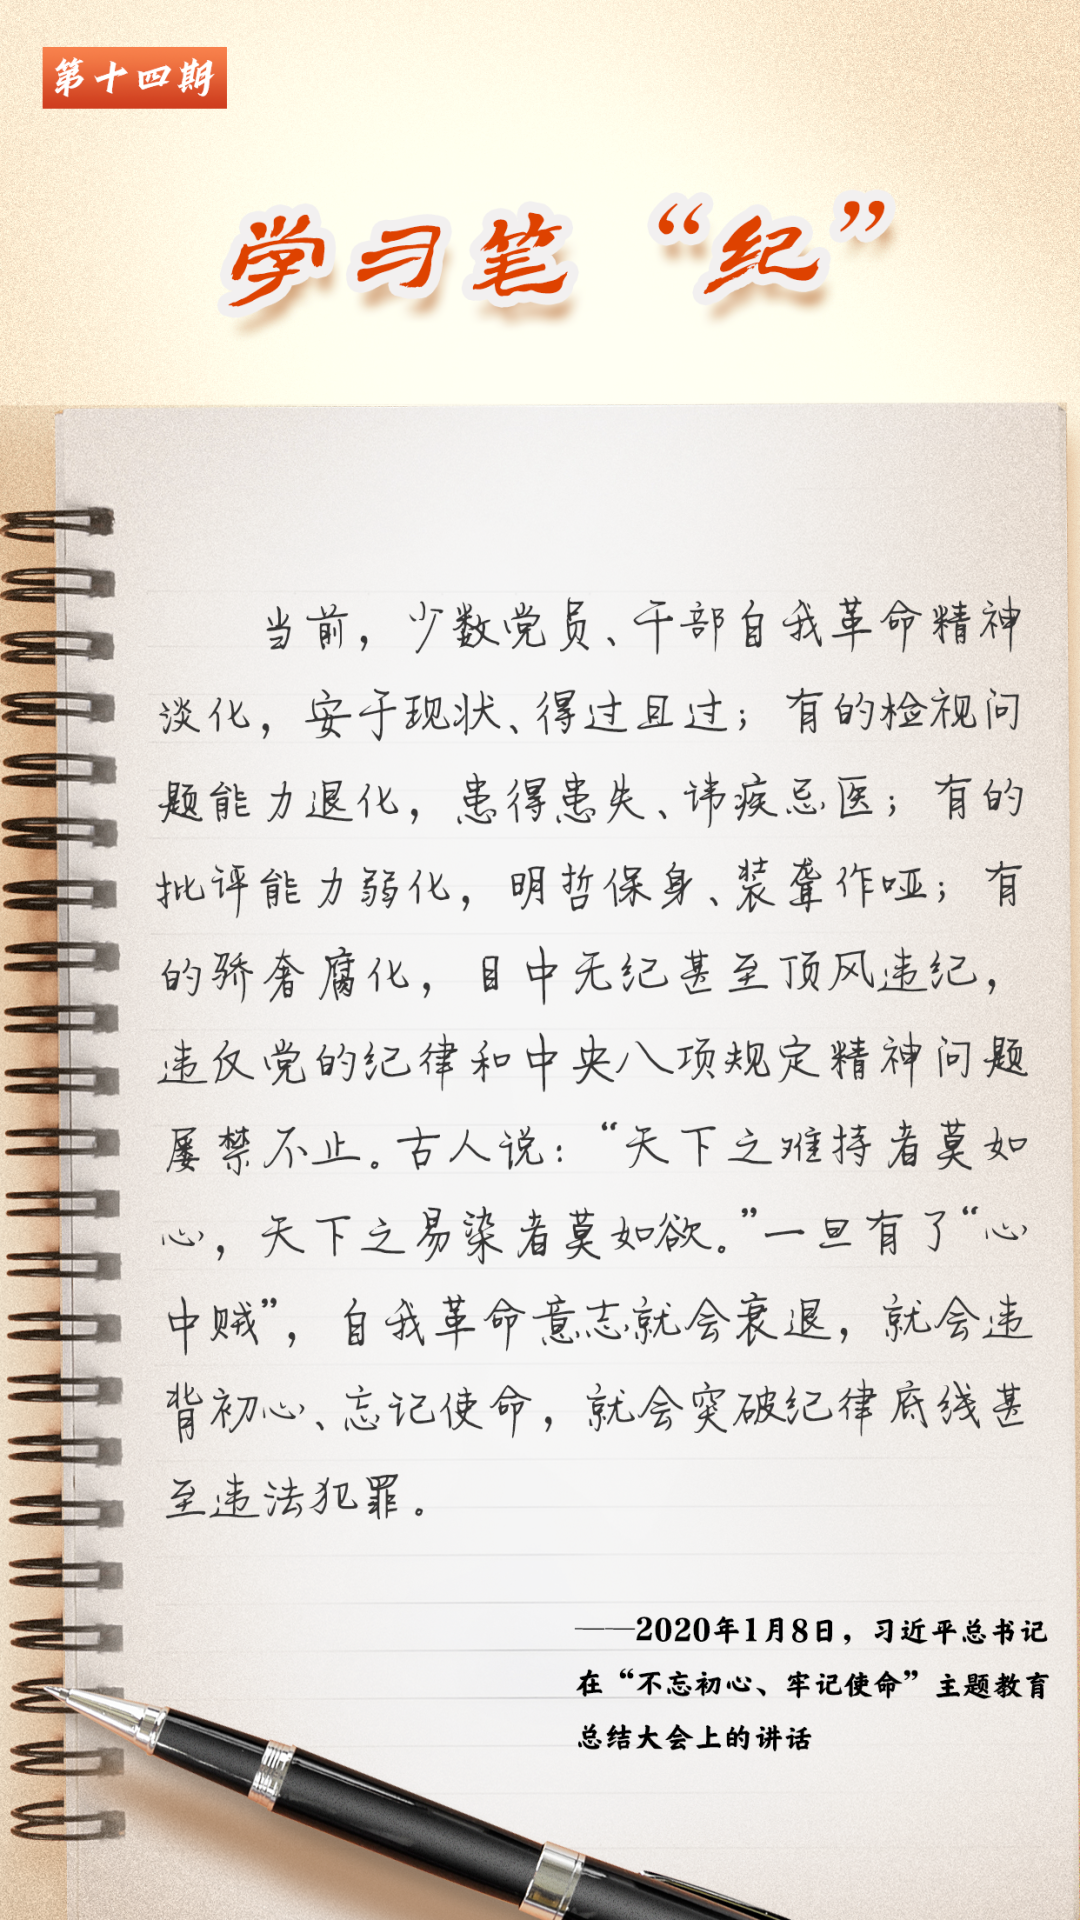 第十四期
学习笔“纪”
当前，少数党员、干部自我革命精神
淡化，安于现状、得过且过；有的检视问
题能力退化，患得患失、讳疾忌医；有的
批评能力弱化，明哲保身、装聋作哑；有
的骄奢腐化，目中无纪甚至顶风违纪，
违反党的纪律和中央八项规定精神问题
屡禁不止。古人说：“天下之难持者莫如
心，天下之易染者莫如欲。”一旦有了“心
中贼”，自我革命意志就会衰退，就会违
背初心、忘记使命，就会突破纪律底线甚
至违法犯罪。
——2020年1月8日，习近平总书记
在“不忘初心、牢记使命”主题教育
总结大会上的讲话